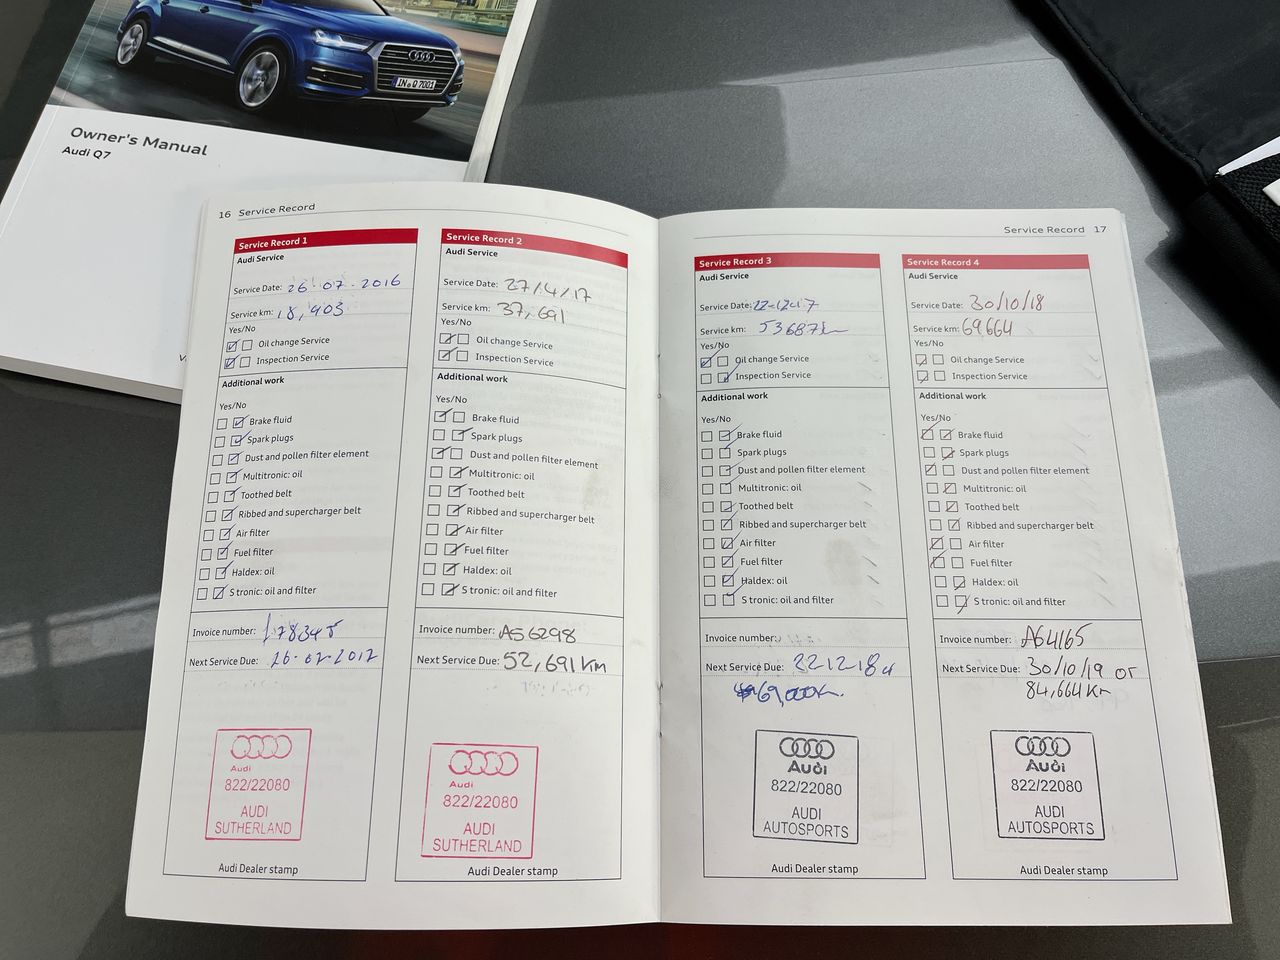 IN Q 7001
Owner's Manual
Audi Q7
16 Service Record
Service Record 1
Audi Service
Service Date: 26-07-2016
Service km: 18,903
Yes/No
Oil change Service
Inspection Service
Additional work
Yes/No
Brake fluid
Spark plugs
Dust and pollen filter element
Multitronic: oil
Toothed belt
Ribbed and supercharger belt
Air filter
Fuel filter
Haldex: oil
S tronic: oil and filter
Invoice number:
Next Service Due: 26-07-2017
Audi
822/22080
AUDI
SUTHERLAND
Audi Dealer stamp
Service Record 2
Audi Service
Service Date: 27/4/17
Service km: 37,691
Yes/No
Oil change Service
Inspection Service
Additional work
Yes/No
Brake fluid
Spark plugs
Dust and pollen filter element
Multitronic: oil
Toothed belt
Ribbed and supercharger belt
Air filter
Fuel filter
Haldex: oil
S tronic: oil and filter
Invoice number: A56298
Next Service Due: 52,691 Km
Audi
822/22080
AUDI
SUTHERLAND
Audi Dealer stamp
Service Record 17
Service Record 3
Audi Service
Service Date: 22-12-17
Service km:
Yes/No
Oil change Service
Inspection Service
Additional work
Yes/No
Brake fluid
Spark plugs
Dust and pollen filter element
Multitronic: oil
Toothed belt
Ribbed and supercharger belt
Air filter
Fuel filter
Haldex: oil
S tronic: oil and filter
Invoice number:
Next Service Due: 22-12-18
69,000K
Audi
822/22080
AUDI
AUTOSPORTS
Audi Dealer stamp
Service Record 4
Audi Service
Service Date: 30/10/18
Service km: 69664
Yes/No
Oil change Service
Inspection Service
Additional work
Yes/No
Brake fluid
Spark plugs
Dust and pollen filter element
Multitronic: oil
Toothed belt
Ribbed and supercharger belt
Air filter
Fuel filter
Haldex: oil
S tronic: oil and filter
Invoice number: A64165
Next Service Due: 30/10/19 or
84,664 Km
Audi
822/22080
AUDI
AUTOSPORTS
Audi Dealer stamp